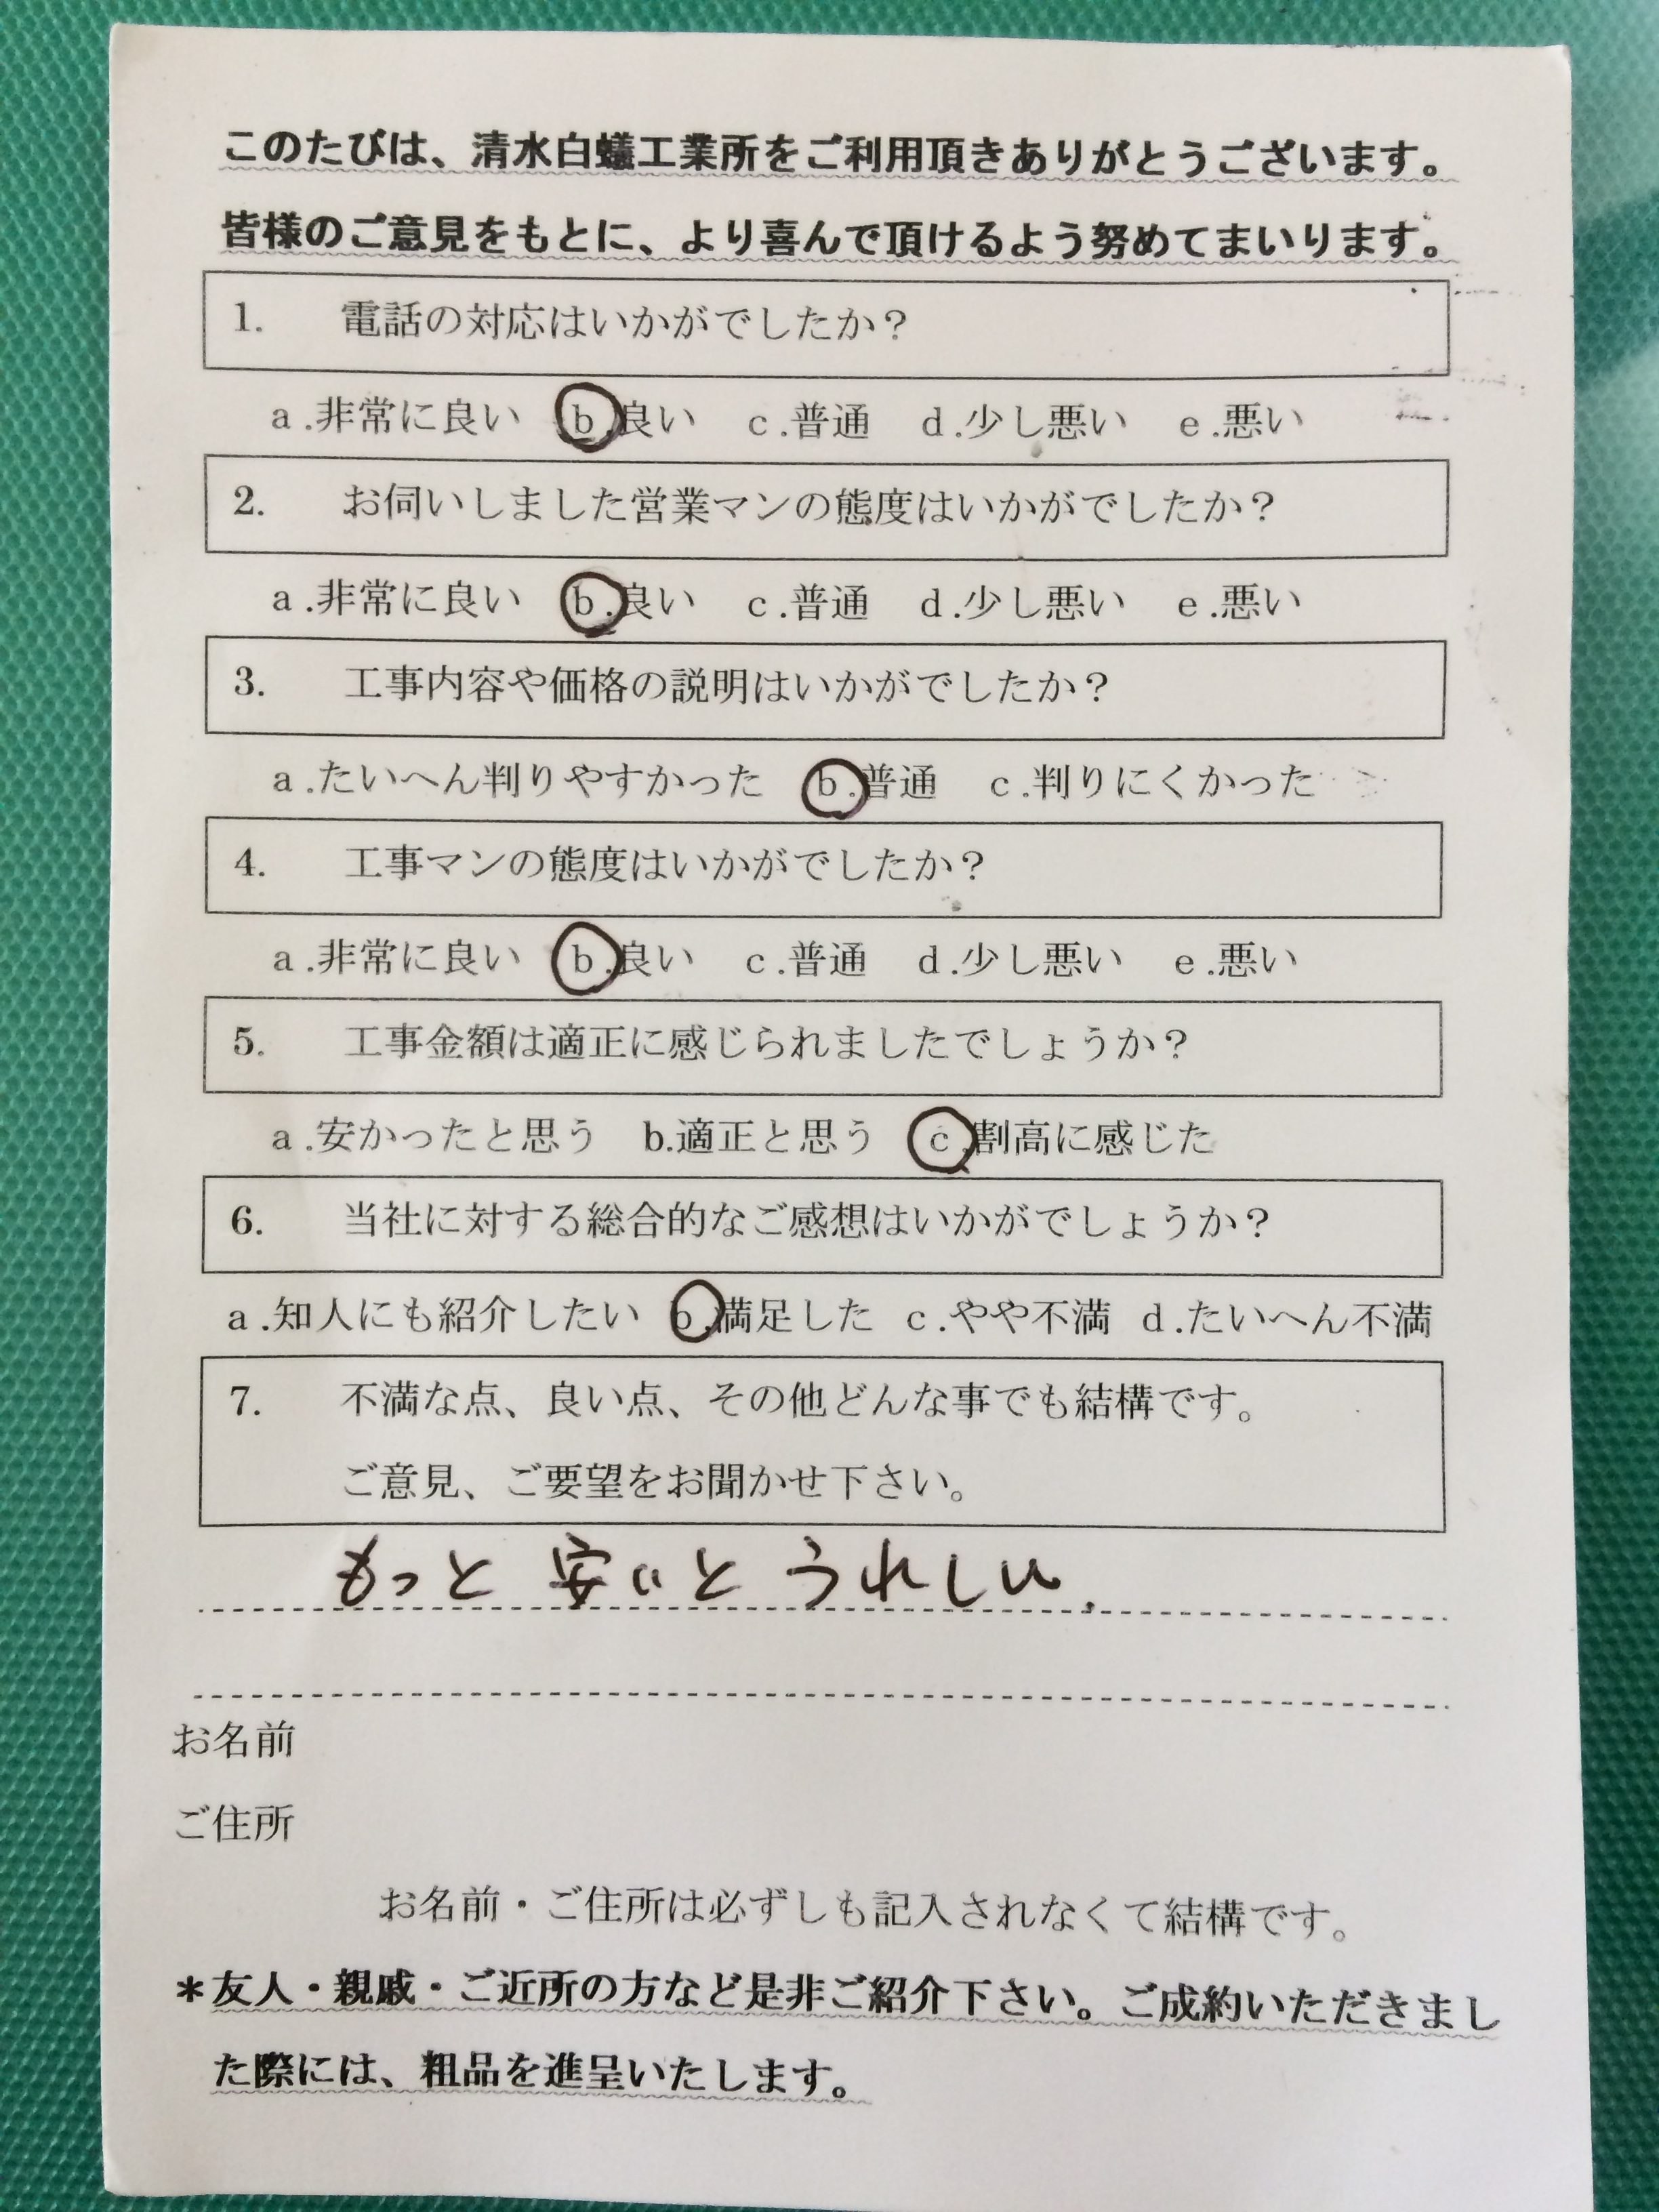 このたびは、清水白蟻工業所をご利用頂きありがとうございます。
皆様のご意見をもとに、より喜んで頂けるよう努めてまいります。
1. 電話の対応はいかがでしたか？
a.非常に良い b.良い c.普通 d.少し悪い e.悪い
2. お伺いしました営業マンの態度はいかがでしたか？
a.非常に良い b.良い c.普通 d.少し悪い e.悪い
3. 工事内容や価格の説明はいかがでしたか？
a.たいへん判りやすかった b.普通 c.判りにくかった
4. 工事マンの態度はいかがでしたか？
a.非常に良い b.良い c.普通 d.少し悪い e.悪い
5. 工事金額は適正に感じられましたでしょうか？
a.安かったと思う b.適正と思う c.割高に感じた
6. 当社に対する総合的なご感想はいかがでしょうか？
a.知人にも紹介したい b.満足した c.やや不満 d.たいへん不満
7. 不満な点、良い点、その他どんな事でも結構です。
ご意見、ご要望をお聞かせ下さい。
もっと 安いと うれしい.
お名前
ご住所
お名前・ご住所は必ずしも記入されなくて結構です。
*友人・親戚・ご近所の方など是非ご紹介下さい。ご成約いただきまし
た際には、粗品を進呈いたします。